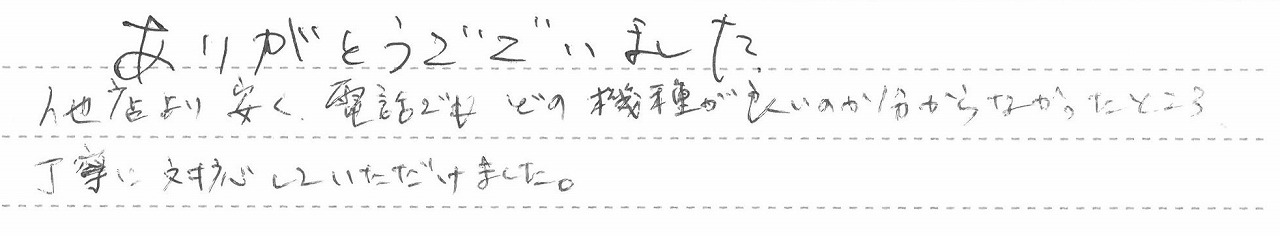 ありがとうございました。
他店より安く、電話でも どの機種が良いのか分からなかったところ、
丁寧に対応していただけました。